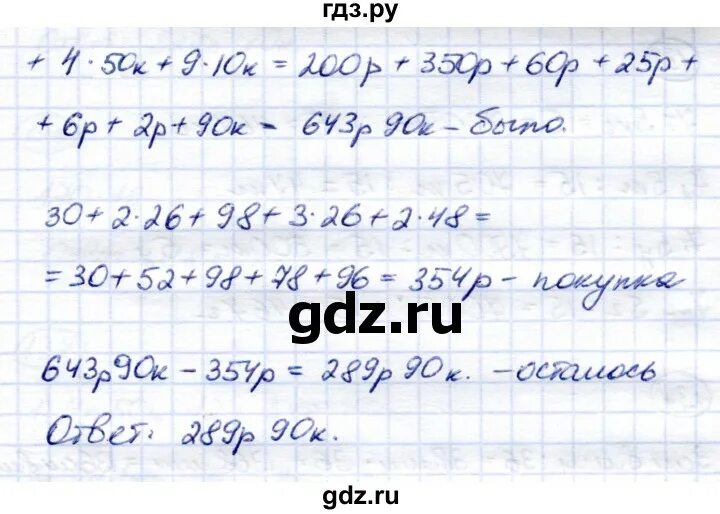 гдз.ру
+ 4·50к + 9·10к = 200р + 350р + 60р + 25р +
+ 6р + 2р + 90к = 643р 90к – было.
30 + 2·26 + 98 + 3·26 + 2·48 =
= 30 + 52 + 98 + 78 + 96 = 354р – покупка
gdz.ru
643р90к – 354р = 289р 90к. – осталось
Ответ: 289р 90к.
gdz.ru